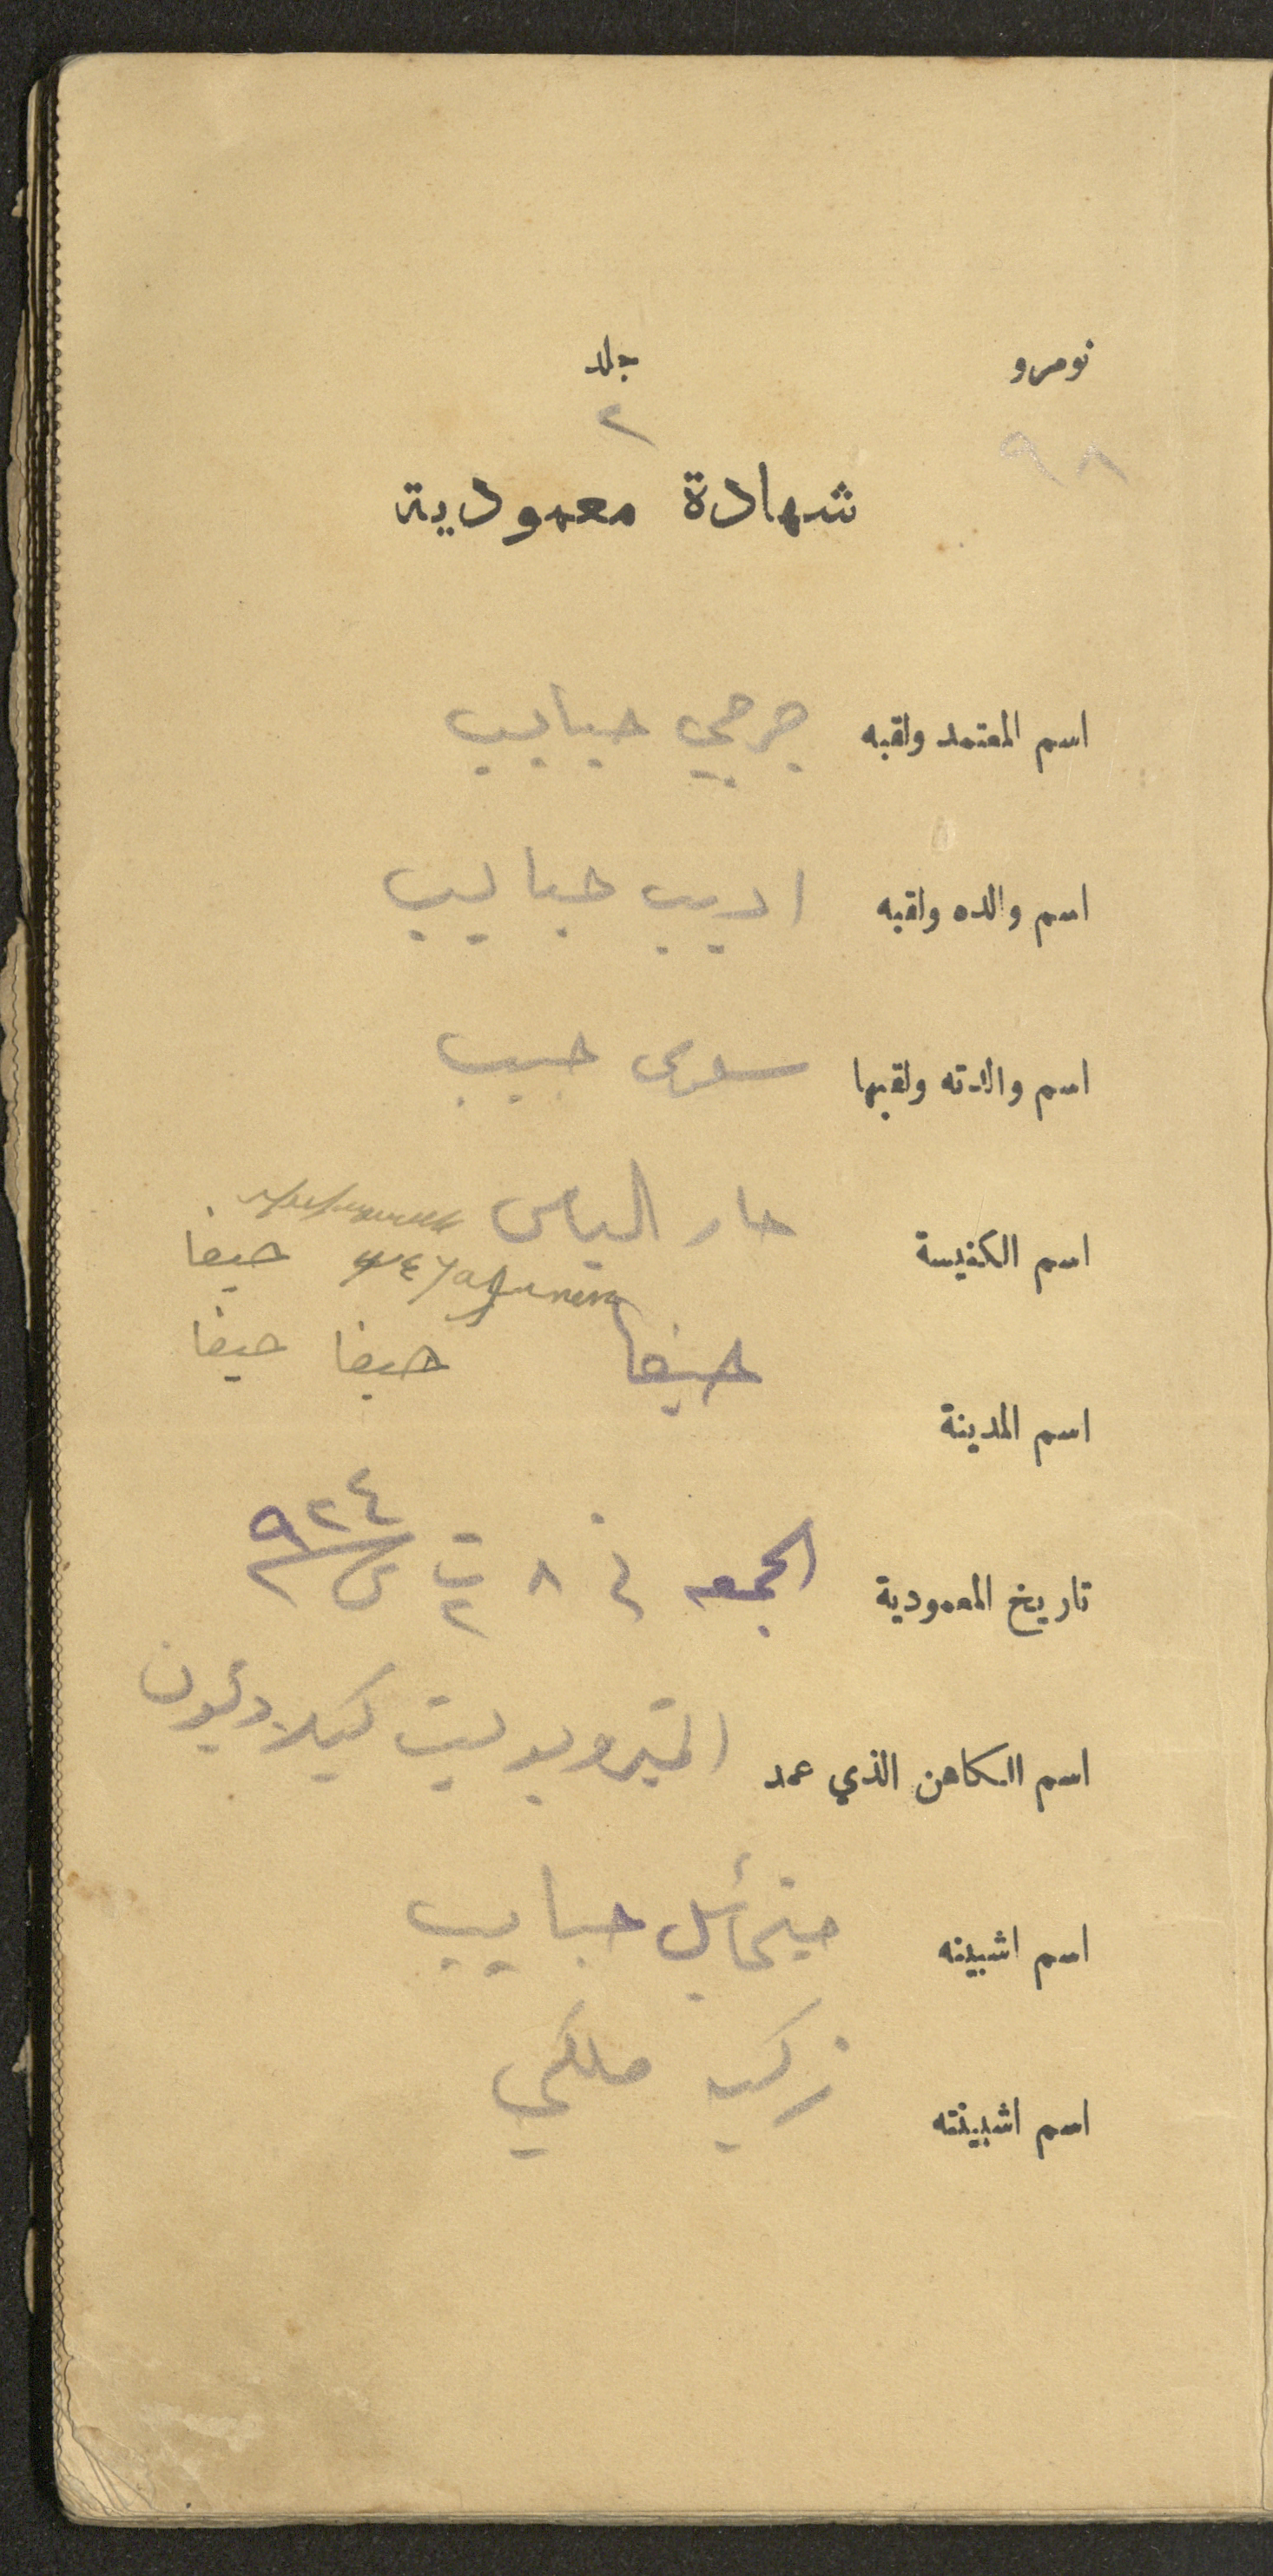 نومرو جلد
٩٨ ٢
شهادة معمودية
اسم المعتمد ولقبه جرجي حبايب
اسم والده ولقبه اديب حبايب
اسم والدته ولقبها سلوى حبيب
اسم الكنيسة مار الياس
حيفا
حيفا حيفا حيفا
اسم المدينة
تاريخ المعمودية الجمعه في ٨ ت٢ س ٩٢٤
اسم الكاهن الذي عمد المتروبوليت كيلاديون
اسم اشبينه ميخائيل حبايب
اسم اشبينته زكيه ملكي